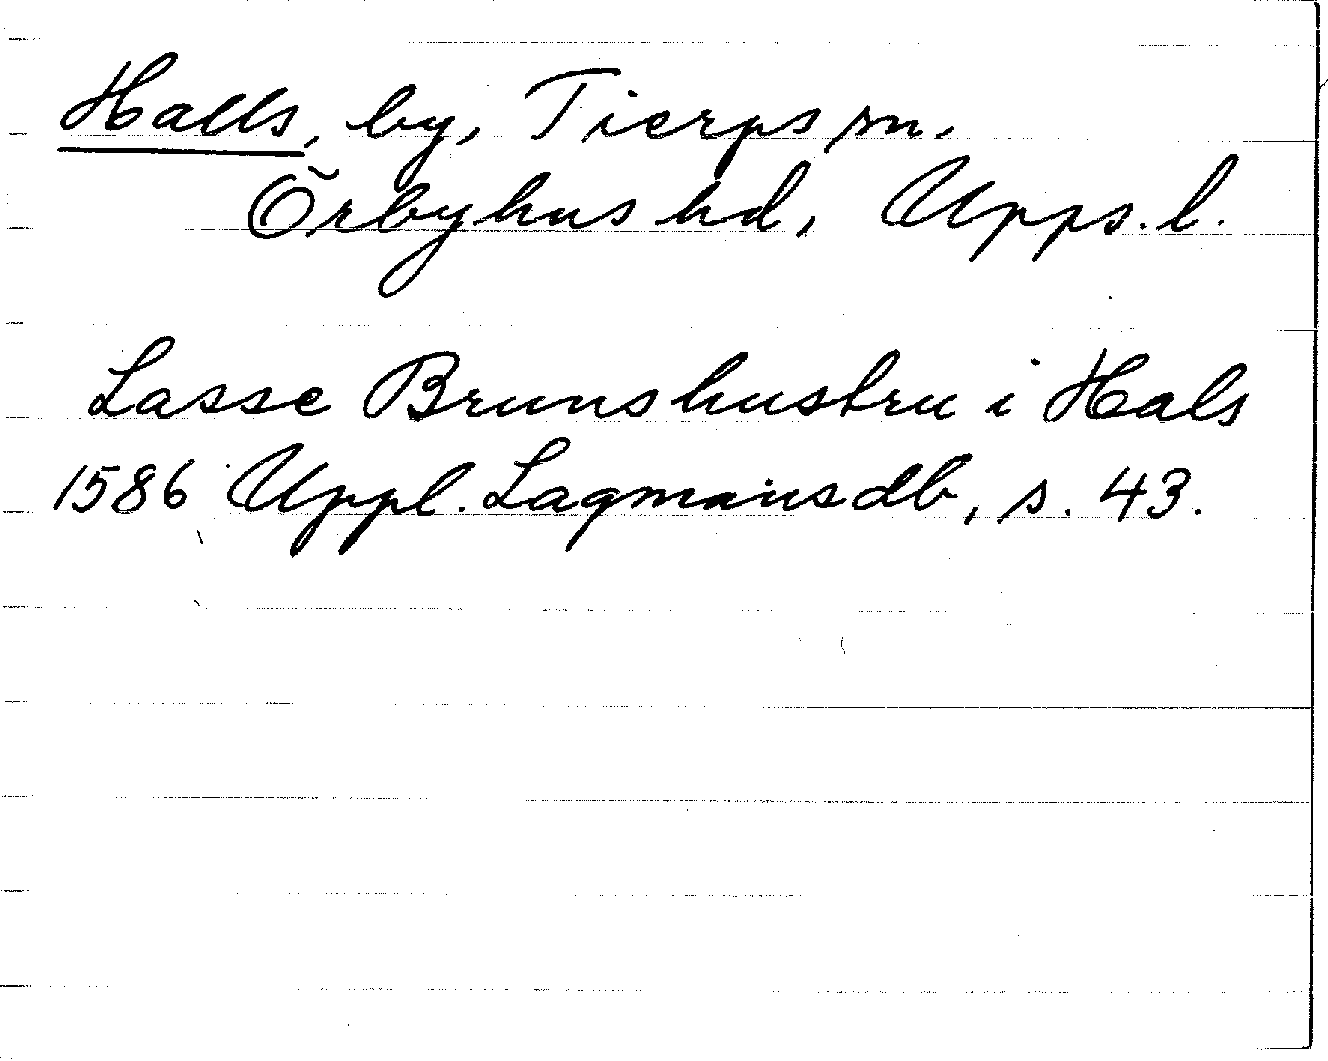 Halls, by, Tierps sn.
Örbyhus hd, Upps. l.
Lasse Bruns hustru i Hals
1586 Uppl. Lagmansdb, s. 43.